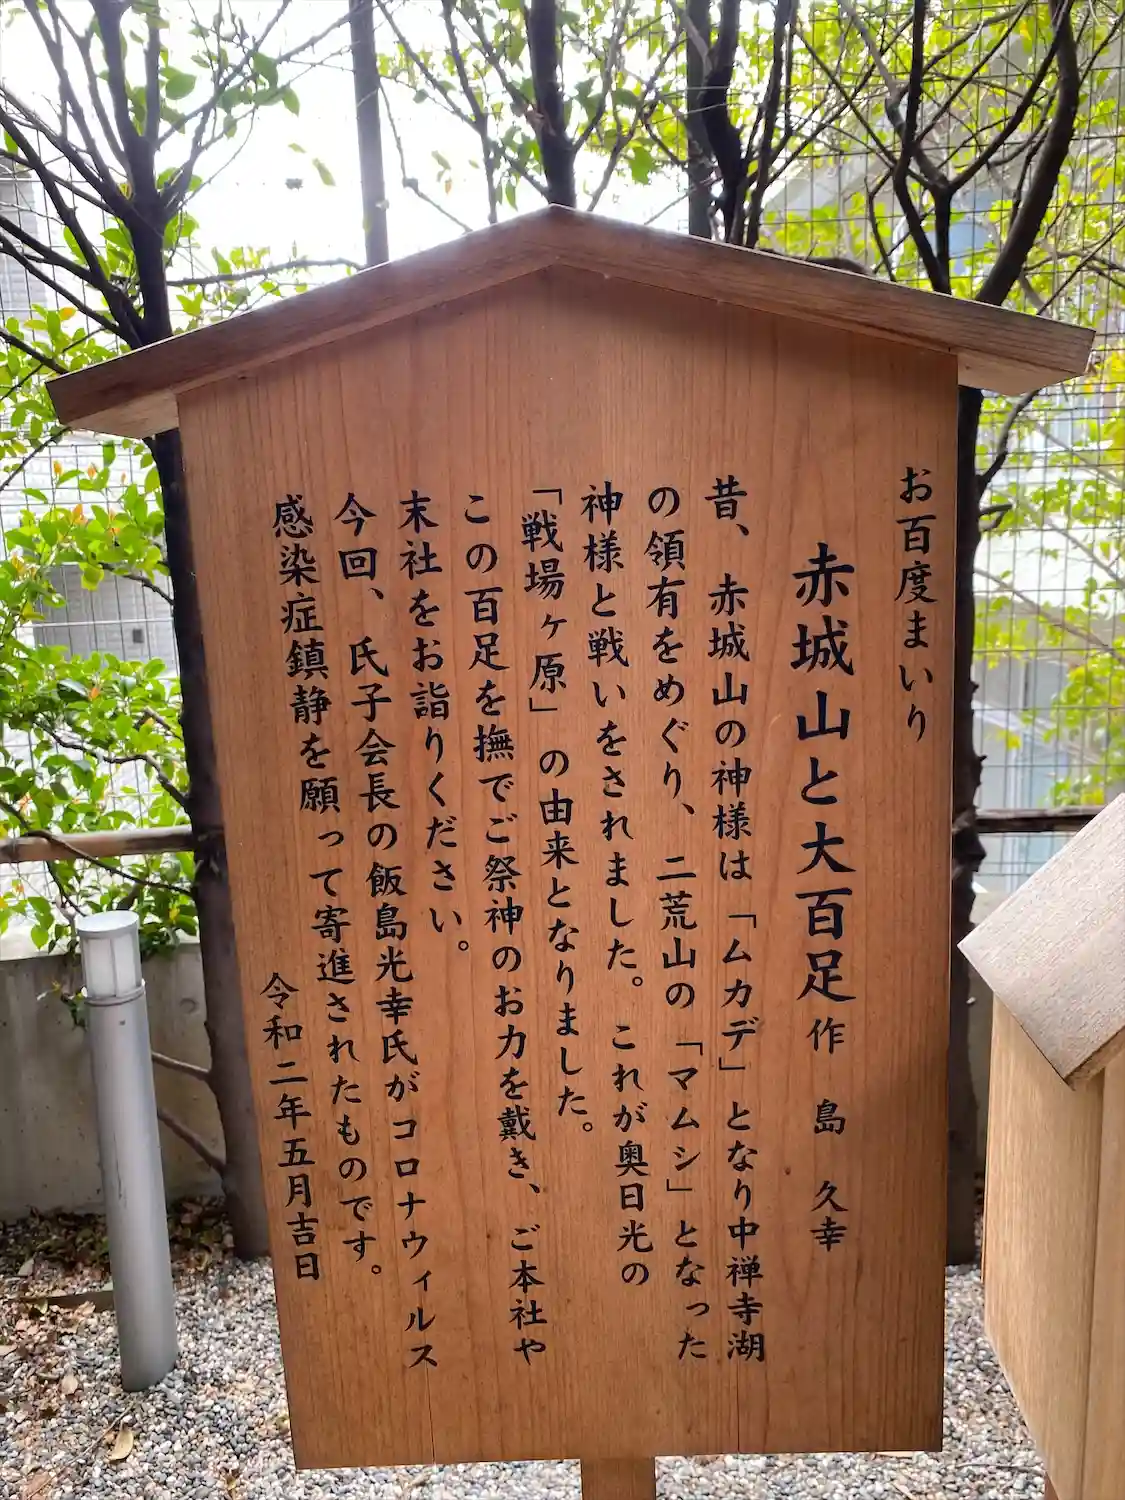 お百度まいり
赤城山と大百足 作 島 久幸
昔、赤城山の神様は「ムカデ」となり中禅寺湖
の領有をめぐり、二荒山の「マムシ」となった
神様と戦いをされました。これが奥日光の
「戦場ヶ原」の由来となりました。
この百足を撫でご祭神のお力を戴き、ご本社や
末社をお詣りください。
今回、氏子会長の飯島光幸氏がコロナウィルス
感染症鎮静を願って寄進されたものです。
令和二年五月吉日